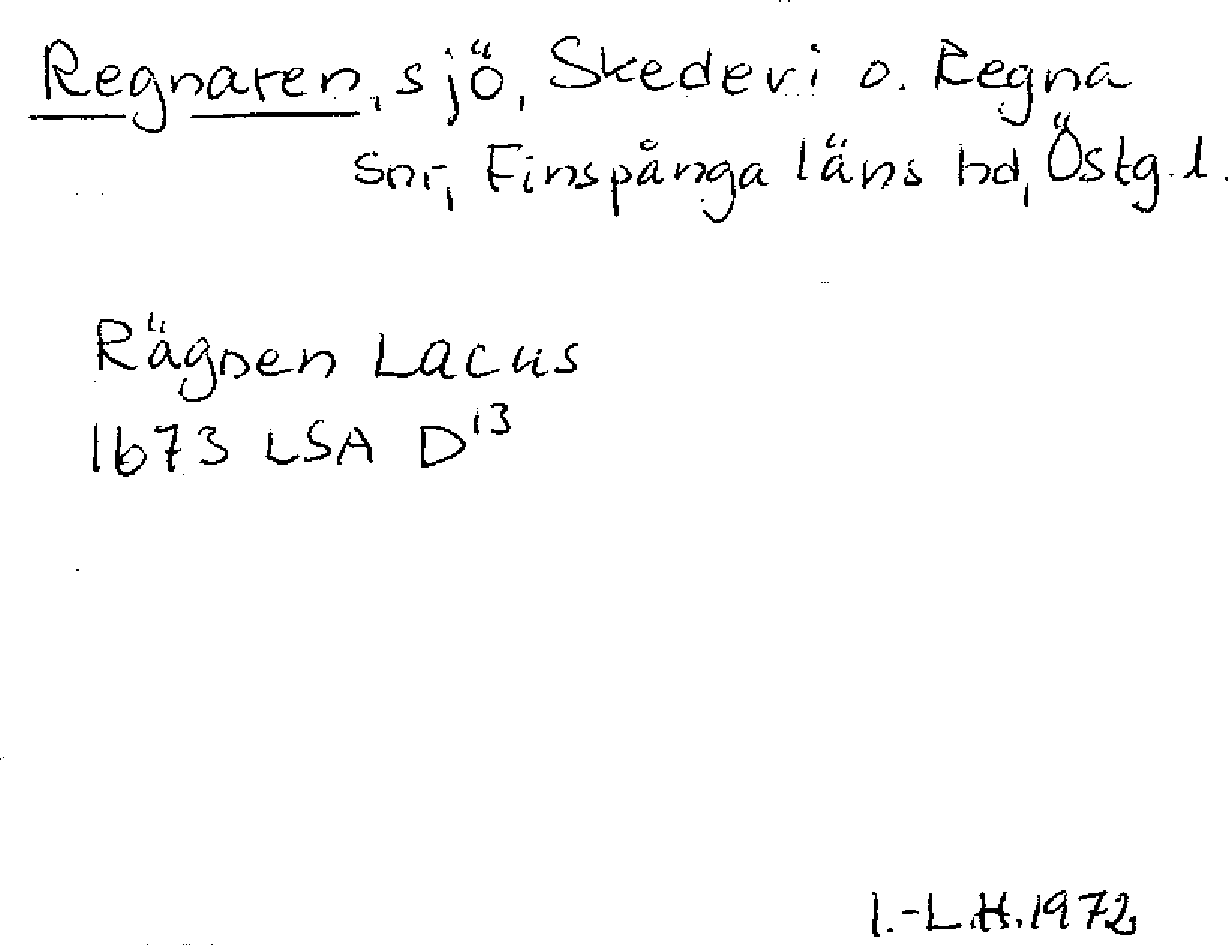 Regnaren, sjö, Skedevi o. Regna
snr, Finspånga läns hd, Östg. l.
Rägnen Lacus
1673 LSA D¹³
I.-L.H. 1972